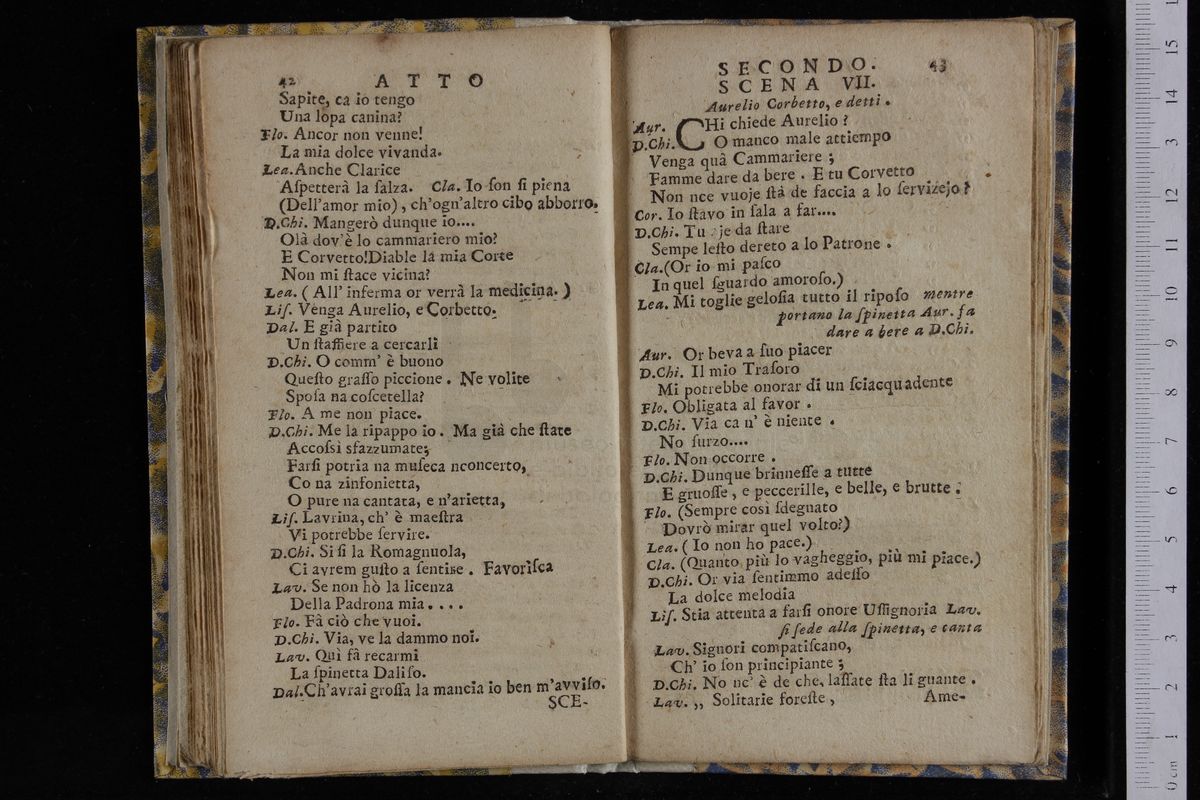 42 ATTO
Sapite, ca io tengo
Una lopa canina?
Flo. Ancor non venne!
La mia dolce vivanda.
Lea. Anche Clarice
Aſpetterà la ſalza. Cla. Io ſon ſi piena
(Dell'amor mio), ch'ogn'altro cibo abborro.
D.Chi. Mangerò dunque io....
Olà dov'è lo cammariero mio?
E Corvetto!Diable la mia Corte
Non mi ſtace vicina?
Lea. ( All' inferma or verrà la medicina. )
Liſ. Venga Aurelio, e Corbetto.
Dal. E già partito
Un ſtaffiere a cercarli
D.Chi. O comm' è buono
Queſto graſſo piccione. Ne volite
Spoſa na coſcetella?
Flo. A me non piace.
D.Chi. Me la ripappo io. Ma già che ſtate
Accoſsì sfazzumate;
Farſi potria na muſeca nconcerto,
Co na zinfonietta,
O pure na cantata, e n'arietta,
Liſ. Lavrina, ch' è maeſtra
Vi potrebbe ſervire.
D.Chi. Si ſi la Romagnuola,
Ci avrem guſto a ſentire. Favoriſca
Lav. Se non hò la licenza
Della Padrona mia....
Flo. Fà ciò che vuoi.
D.Chi. Via, ve la dammo noi.
Lav. Quì fà recarmi
La ſpinetta Daliſo.
Dal. Ch'avrai groſſa la mancia io ben m'avviſo.
SCE-
SECONDO. 43
SCENA VII.
Aurelio Corbetto, e detti.
Aur. CHi chiede Aurelio?
D.Chi. O manco male attiempo
Venga quà Cammariere;
Famme dare da bere. E tu Corvetto
Non nce vuoje ſtà de faccia a lo ſervizejo?
Cor. Io ſtavo in ſala a far....
D.Chi. Tu je da ſtare
Sempe leſto dereto a lo Patrone.
Cla. (Or io mi paſco
In quel ſguardo amoroſo.)
Lea. Mi toglie geloſia tutto il ripoſo mentre
portano la ſpinetta Aur. fa
dare a bere a D.Chi.
Aur. Or beva a ſuo piacer
D.Chi. Il mio Traſoro
Mi potrebbe onorar di un ſciacquadente
Flo. Obligata al favor.
D.Chi. Via ca n' è niente.
No ſurzo....
Flo. Non occorre.
D.Chi. Dunque brinneſſe a tutte
E gruoſſe, e peccerille, e belle, e brutte.
Flo. (Sempre così ſdegnato
Dovrò mirar quel volto?)
Lea. ( Io non ho pace.)
Cla. (Quanto più lo vagheggio, più mi piace.)
D.Chi. Or via ſentimmo adeſſo
La dolce melodia
Liſ. Stia attenta a farſi onore Uſſignoria Lav.
ſi ſede alla ſpinetta, e canta
Lav. Signori compatiſcano,
Ch' io ſon principiante;
D.Chi. No nc' è de che, laſſate ſta li guante.
Lav. ,, Solitarie foreſte,
Ame-